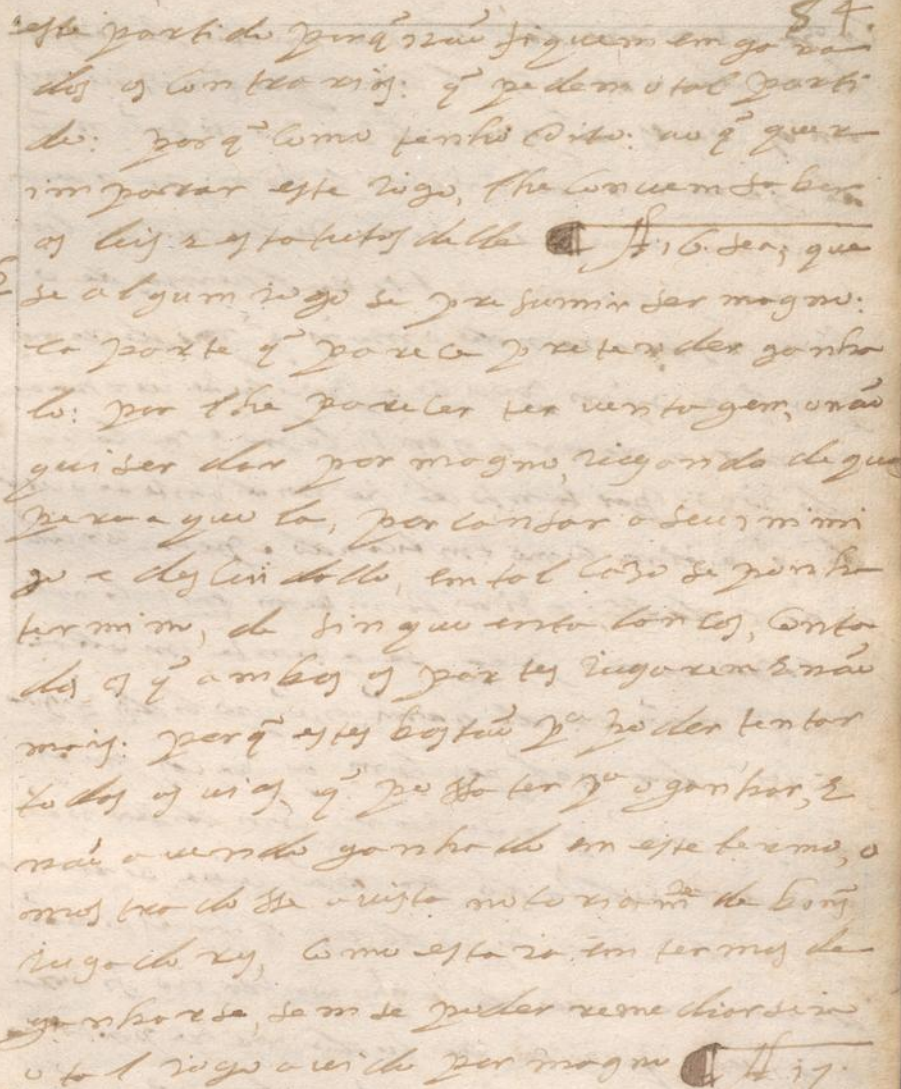 54.
este partido porq̃ não fiquem emgana
dos os contrarios: q̃ pedem o tal parti
do: porq̃ como tenho dito: ao q̃ quer
importar este iogo, lhe conuem saber
as leis e estatutos delle ¶ 16. sera, que
se algum iogo se presumir ser magno:
e a parte q̃ parece pretender ganha
lo: por lhe parecer ter uentagem, o não
quiser dar por magno, iugando de qua
pera aquela, por cansar o seu inimi
go e descuidallo, em tal cazo se ponha
termino, de sinquoenta lanços, conta
dos os q̃ ambas as partes iugarem E não
mais: porq̃ estes bastão pª poder tentar
todas as uias, q̃ possa ter pª o ganhar, E
não auendo ganhado em este termo, o
mostradosse a uista notoriamẽ de bons
iugadores, como estaia em termos de
ganharse, sem se poder remediar sera
o tal iogo auido por magno ¶ 17.